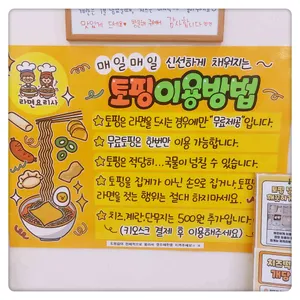 맛있게 드세요
감사합니다
매일매일 신선하게 채워지는
토핑이용방법
라면요리사
☆토핑은 라면을 드시는 경우에만 "무료제공"입니다.
☆무료토핑은 한번만 이용 가능합니다.
☆토핑은 적당히...국물이 넘칠 수 있습니다.
☆토핑을 집게가 아닌 손으로 집거나, 토핑에
라면을 젓는 행위는 절대 하지마세요.
☆치즈,계란,단무지는 500원 추가입니다.
(키오스크 결제 후 이용해주세요)